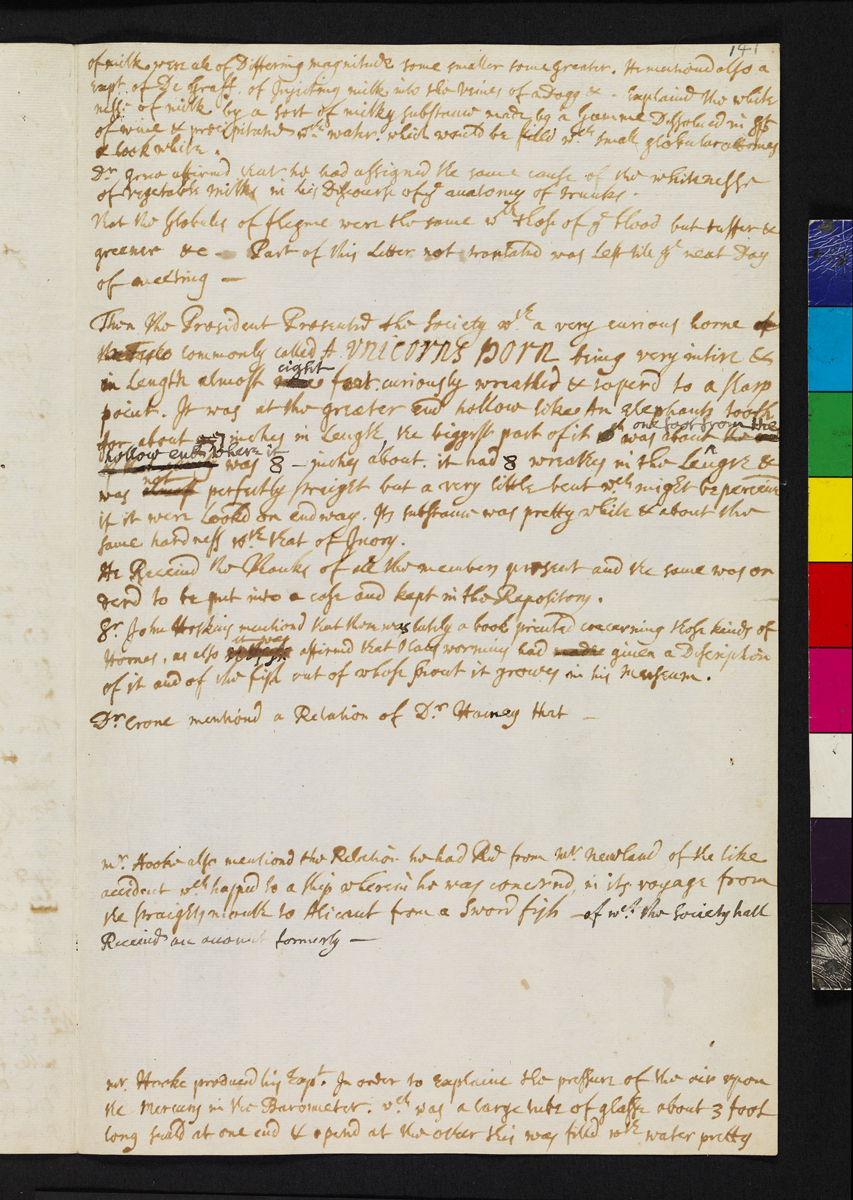 141
of milk were all of Differing magnitude some smaller some greater. He mentiond also a
Expt. of De Graff. of Injecting milk into the veines of a Dogg &c - Explaind the white
nesse of milk by a sort of milky substance made by a Gumme Dissolved in spt
of wine & precipitated wth water. which would be filld wth small globular atomes
& look white.
Dr. Grew affirmd that he had assigned the same cause of the whitenesse
of vegetable milks in his Discourse of ye anatomy of trunks.
That the Globules of flegme were the same wth those of ye blood but tuffer &
greener &c - Part of this Letter not translated was Left till ye next Day
of meeting —
Then the President Presented the Society wth a very curious horne
commonly called A VNICORNS HORN being very intire &
in Length almost eight foot curiously wreathd & taperd to a sharp
point. It was at the greater end hollow like An Elephants tooth
for about inches in Length, the biggest part of it was about one foot from the
hollow end where it was 8 - inches about. it had 8 wreathes in the Length &
was not perfectly straight but a very little bent wch might be perceived
if it were Lookd on endway. Its substance was pretty white & about the
same hardness wth that of Ivory.
He Receivd the Thanks of all the members present and the same was or
derd to be put into a case and kept in the Repository.
Sr. John Hoskins mentiond that there was lately a book printed concerning those kinds of
Hornes, as also it was affirmd that Olaus wormius had given a Discription
of it and of the fish out of whose snout it growes in his Museum.
Dr. Crone mentiond a Relation of Dr. that —
mr. Hooke also mentiond the Relation he had Recd from mr. Newland of the like
accident wch happed to a ship wherein he was concernd, in its voyage from
the straights mouth to Alicant from a Sword fish - of wch. the Society hath
Receivd an account formerly —
mr. Hooke produced his Expt. In order to Explaine the pressure of the air upon
the Mercury in the Barometer. wch was a large tube of glasse about 3 foot
long seald at one end & opend at the other this was filld wth water pretty